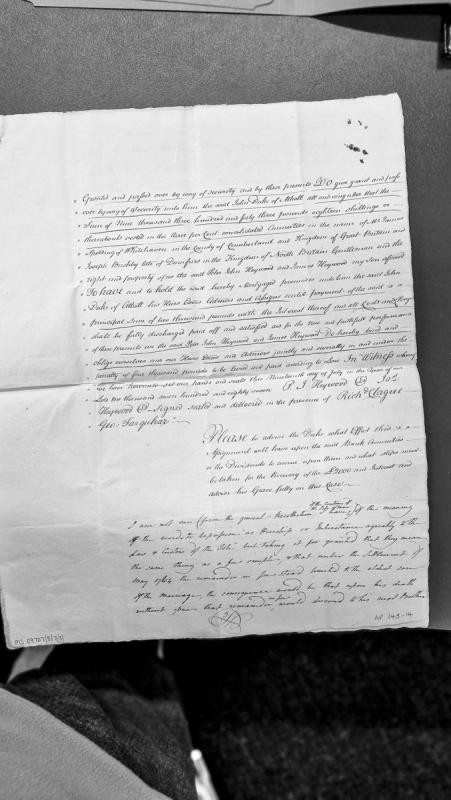 Granted and passed over by way of security and by these presents Do give grant and pass
over by way of Security unto him the said John Duke of Atholl all and singular that the
Sum of Nine thousand three hundred and forty three pounds eighteen shillings or
thereabouts vested in the three per Cent consolidated Annuities in the name of Mr James
Spedding of Whitehaven in the County of Cumberland and Kingdom of Great Britain and
Joseph Birkby late of Dumfries in the Kingdom of North Britain Gentleman and the
right and property of us the said Peter John Heywood and James Heywood my Son afored
To have and to hold the said hereby Mortgaged premises unto him the said John
Duke of Atholl his Heirs Exors Admors and Assigns until payment of the said
principal Sum of two thousand pounds with the Interest thereof and all Costs and
shall be fully discharged paid off and satisfied and for the true and faithfull performance
of these presents we the said Peter John Heywood and James Heywood Do hereby bind and
oblige ourselves and our Heirs Exors and Admors jointly and severally in and under the
penalty of five thousand pounds to be levied and paid according to Law In Witness whereof
we have hereunto set our hands and seals this Nineteenth day of July in the Year of our
Lord one thousand seven hundred and eighty seven P. J Heywood Jas.
Heywood Signed sealed and delivered in the presence of Richd. Clague
Geo: Farquhar
Please to advise the Duke what Effect this
Assignment will have upon the said Bank Annuities
or the Dividends to accrue upon them and what steps must
be taken for the Recovery of the £2000 and Interest and
advise his Grace fully on this Case
I am not sure (from the general Recollection of the meaning
of the words
as Heirship or Inheritance agreeably to the
Law & Customs of the Isle) but taking it for granted that they mean
the same thing as a fee simple, & that under the Settlement of
May 1764 the remainder in fee stood limited to the eldest son
of the Marriage, the consequence would be that upon his death
without issue that remainder would descend to his next Brother
MS 09707/8/7(3)
AP 143-14